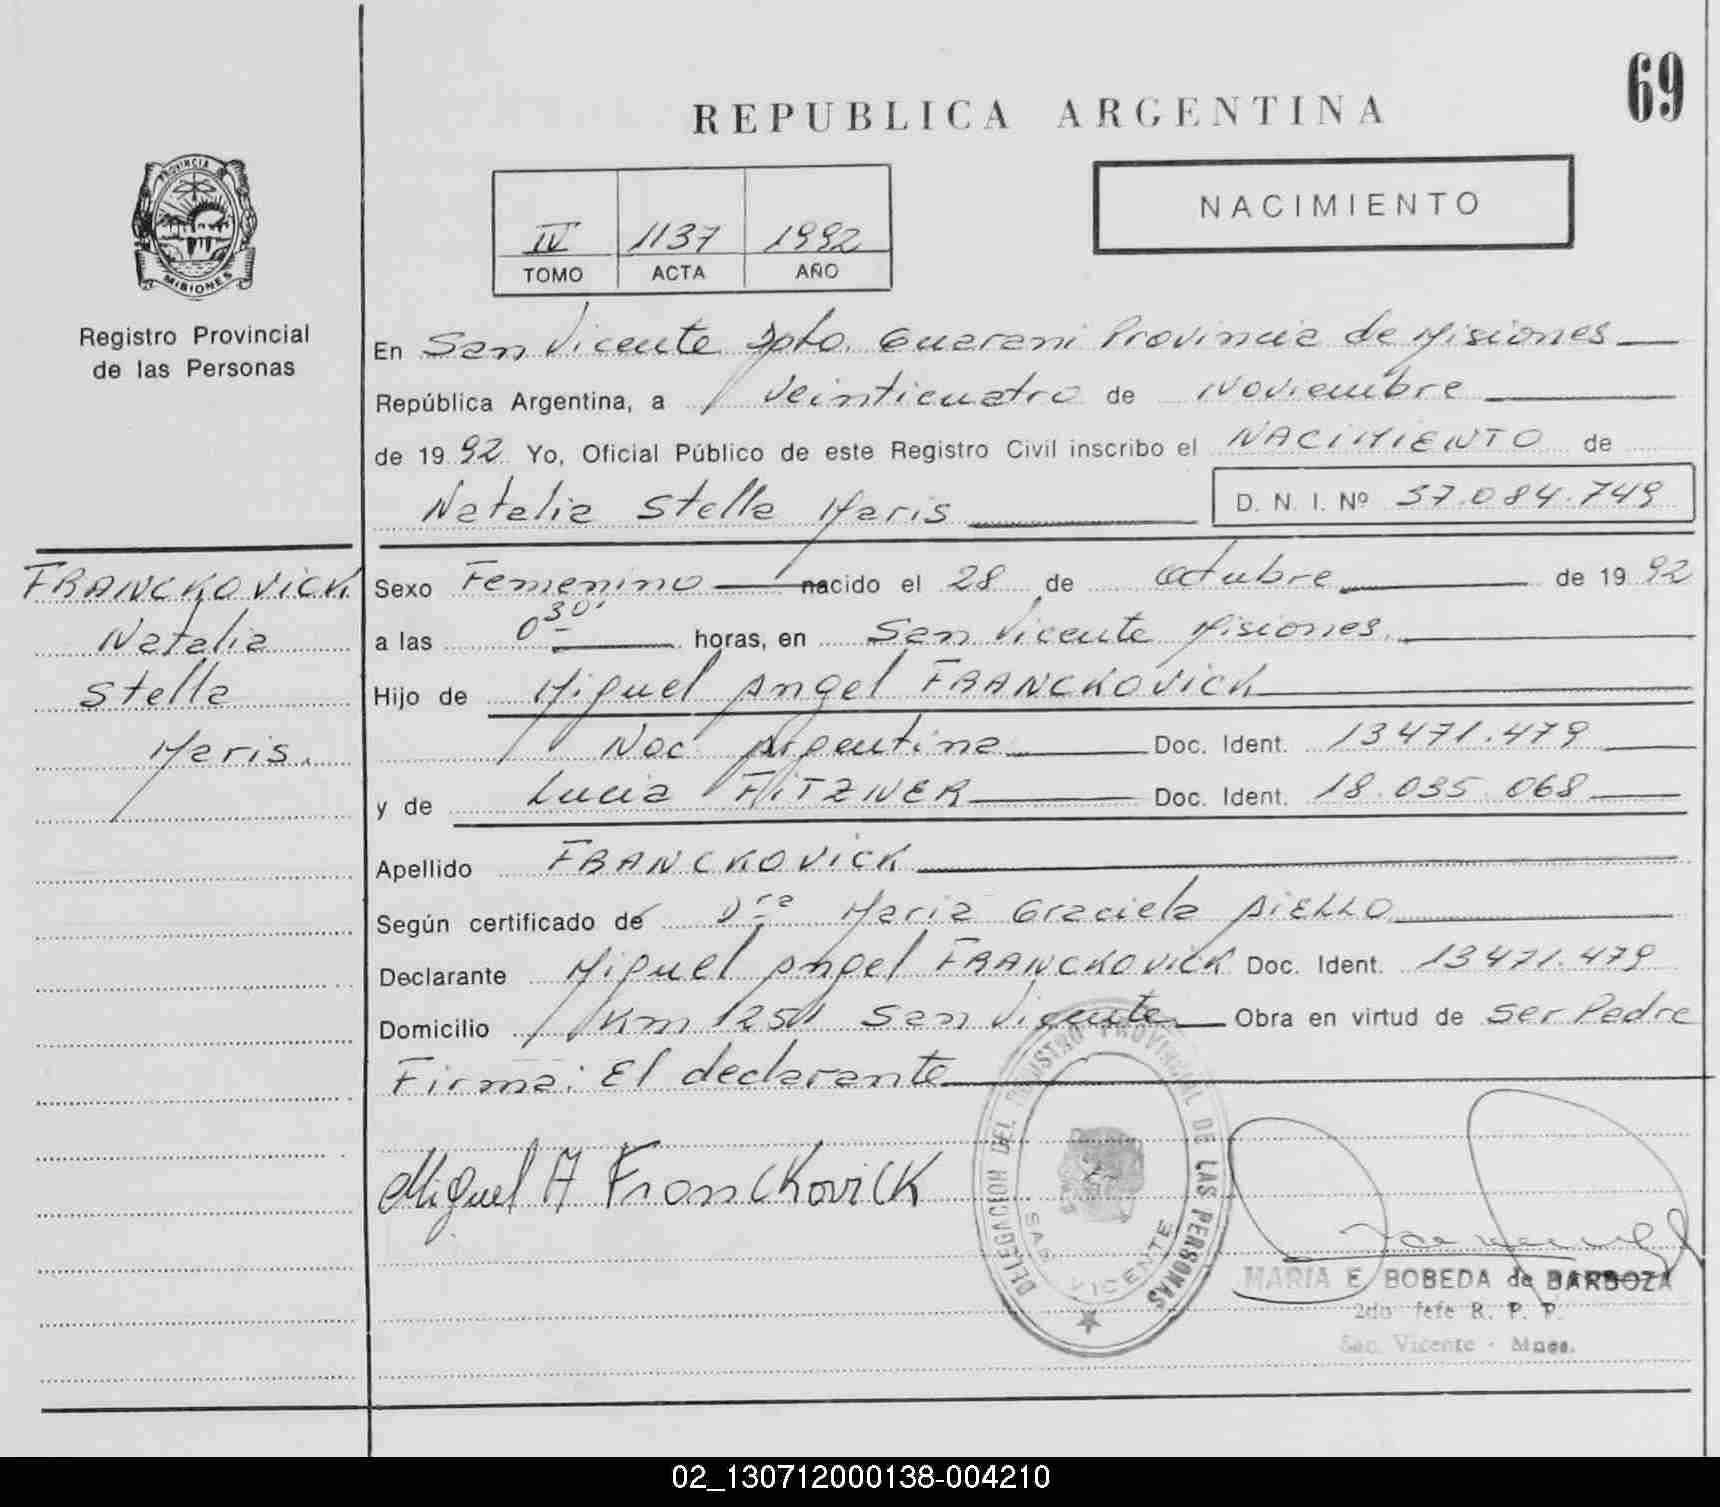 69
REPUBLICA ARGENTINA
PROVINCIA
MISIONES
Registro Provincial
de las Personas
NACIMIENTO
IV 1137 1992
TOMO ACTA AÑO
En San Vicente Dpto. Guarani Provincia de Misiones
República Argentina, a Veinticuatro de Noviembre
de 1992 Yo, Oficial Público de este Registro Civil inscribo el NACIMIENTO de
Natalia Stella Maris D. N. I. Nº 37.084.749
FRANCKOVICK
Natalia
Stella
Maris.
Sexo Femenino nacido el 28 de Octubre de 1992
a las 0 30' horas, en San Vicente Misiones.
Hijo de Miguel Angel FRANCKOVICK
Nac. Argentina Doc. Ident. 13.471.479
y de Lucia FITZNER Doc. Ident. 18.035.068
Apellido FRANCKOVICK
Según certificado de Dra Maria Graciela AIELLO
Declarante Miguel Angel FRANCKOVICK Doc. Ident. 13.471.479
Domicilio Km 1251 San Vicente Obra en virtud de Ser Padre
Firma: El declarante
Miguel A Franckovick
DELEGACION DEL REGISTRO PROVINCIAL DE LAS PERSONAS
SAN VICENTE
MARIA E. BOBEDA de BARBOZA
2do Jefe R. P. P.
San Vicente - Mnes.
02_130712000138-004210